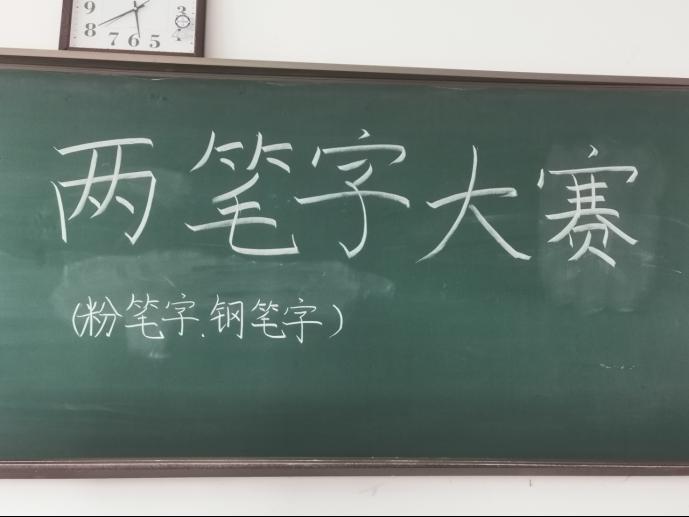 9
8 7 6 5
两笔字大赛
(粉笔字.钢笔字)